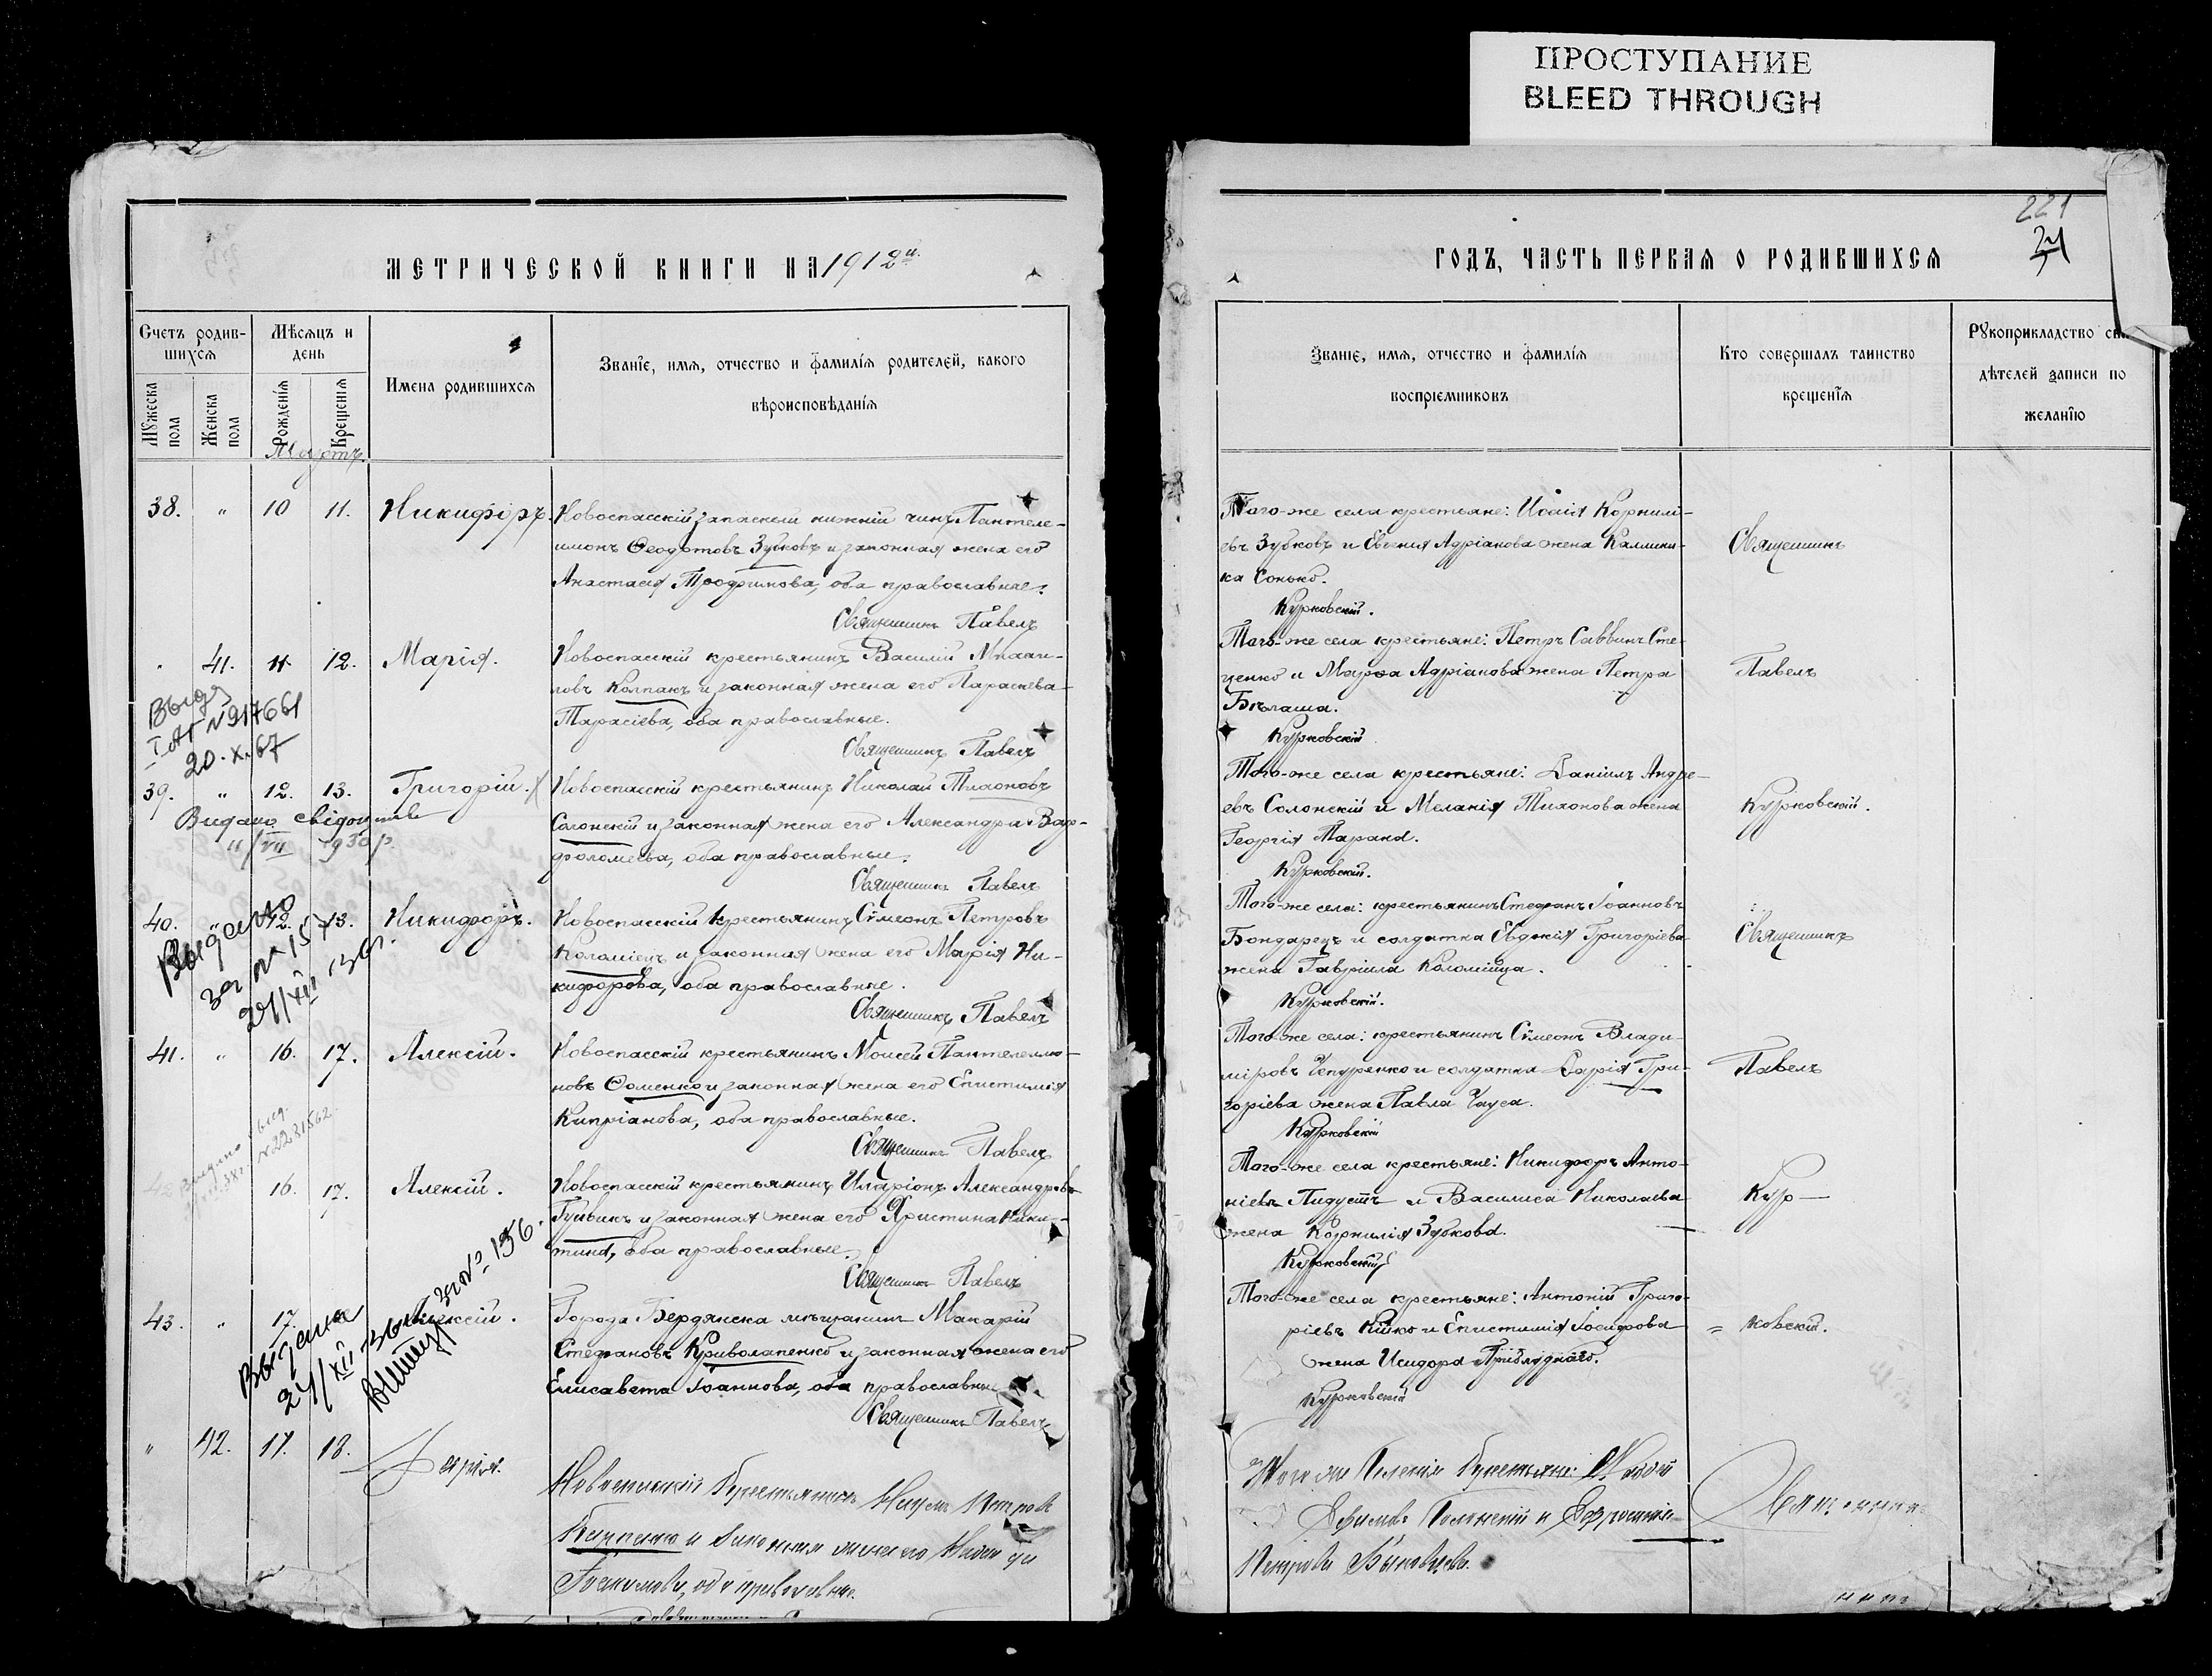 ПРОСТУПАНИЕ
BLEED THROUGH
МЕТРИЧЕСКОЙ КНИГИ НА 1912й
Счетъ родив-
шихся
Мѣсяцъ и
день
Имена родившихся
Званіе, имя, отчество и фамилія родителей, какого
вѣроисповѣданія
Мужеска
пола
Женска
пола
Рожденія
Крещенія
Мартъ.
38. " 10 11. Никифоръ. Новоспасскій запасный нижній чинъ Пантеле-
имонъ Ѳеодотовъ Зубковъ и законная жена его
Анастасія Трофимова, оба православные.
Священникъ Павелъ
41. 11. 12. Марія. Новоспасскій крестьянинъ Василій Михаи-
ловъ Колпакъ и законная жена его Параскева
Тарасіева, оба православные.
Священникъ Павелъ
20.X.67
39. " 12. 13. Григорій. Новоспасскій крестьянинъ Николай Тихоновъ
Солонскій и законная жена его Александра Вар-
фоломеева, оба православные.
Видано свідоцтво
Священникъ Павелъ
40. " 12. 13. Никифоръ. Новоспасскій крестьянинъ Сѵмеонъ Петровъ
Коломіецъ и законная жена его Марія Ни-
кифорова, оба православные.
Выдано
Священникъ Павелъ
41. " 16. 17. Алексій. Новоспасскій крестьянинъ Моисей Пантелеимо-
новъ Ѳоменко и законная жена его Епистимія
Кипріанова, оба православные.
Священникъ Павелъ
16. 17. Алексій. Новоспасскій крестьянинъ Иларіонъ Александровъ
и законная жена его Христина Ники-
тина, оба православные.
Священникъ Павелъ
43. " 17. Алексій. Города Бердянска мѣщанинъ Макарій
Стефановъ Криволапенко и законная жена его
Елисавета Іоаннова, оба православные
Выдана
за № 156.
Священникъ Павелъ
" 42. 17. 18. Дарія. Новоспасскій крестьянинъ Наумъ Петровъ
и законная жена его
оба православные.
ГОДЪ, ЧАСТЬ ПЕРВАЯ О РОДИВШИХСЯ
221
Званіе, имя, отчество и фамилія
воспріемниковъ
Кто совершалъ таинство
крещенія
Рукоприкладство
дѣтелей записи по
желанію
Того-же села крестьяне: Исаія Корнилі-
евъ Зубковъ и Евгенія Адріанова жена Каллини-
ка Сонько.
Священникъ
Курковскій.
Того-же села крестьяне: Петръ Саввинъ Сте-
ценко и Марѳа Адріанова жена Петра
Бѣлаша.
Павелъ
Курковскій
Того-же села крестьяне: Даніилъ Андре-
евъ Солонскій и Меланія Тихонова жена
Георгія Тарана.
Курковскій.
Курковскій.
Того-же села: крестьянинъ Стефанъ Іоанновъ
Бондарецъ и солдатка Евдокія Григоріева
жена Гавріила Коломійца.
Священникъ
Курковскій.
Того-же села: крестьянинъ Сѵмеонъ Влади-
міровъ Чепуренко и солдатка Дарія Гри-
горіева жена Павла Чауса.
Павелъ
Курковскій
Того-же села крестьяне: Никифоръ Анто-
ніевъ и Василиса Николаева
жена Корнилія Зубкова.
Кур-
Курковскій
Того-же села крестьяне: Антоній Григо-
ріевъ Кійко и Епистимія Іосифова
жена Исидора Приблуднаго.
= ковскій.
Курковскій
Того же Селенія Крестьяне:
Ефимовъ Солонскій и Евфросинія
Петрова
Священникъ